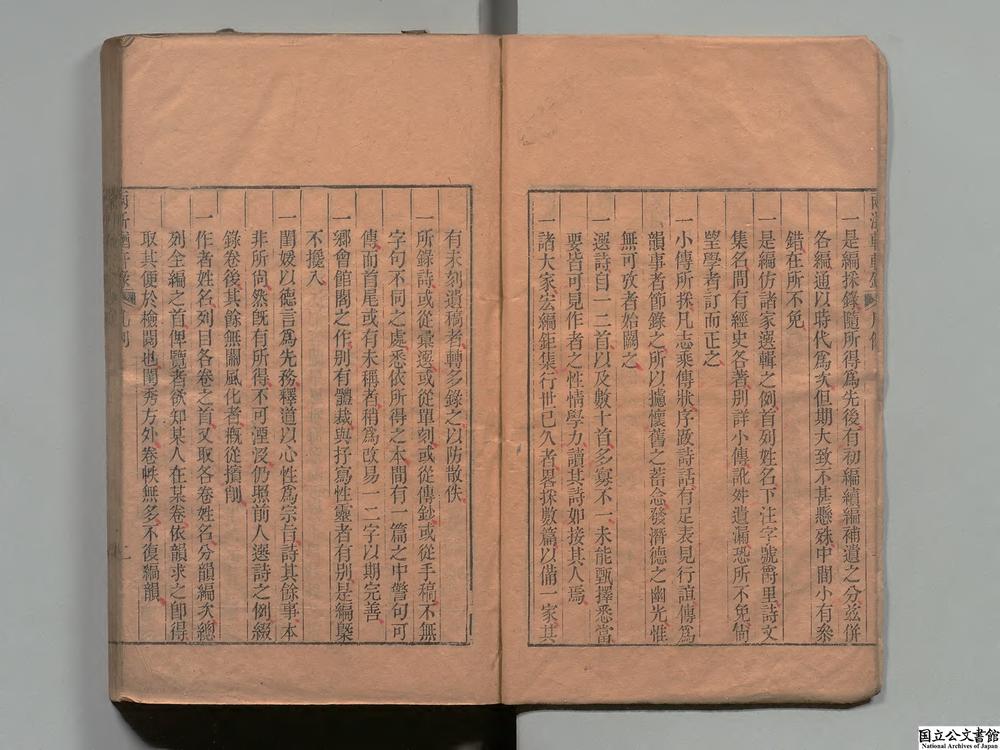 一是編採錄隨所得爲先後有初編續編補遺之分兹併
各編通以時代爲次但期大致不甚懸殊中間小有叅
錯在所不免
一是編仿諸家選輯之例首列姓名下注字號爵里詩文
集名間有經史各著别詳小傳訛舛遺漏恐所不免尙
望學者訂而正之
一小傳所採凡志乘傳狀序跋詩話有足表見行誼傳爲
韻事者節錄之所以攄懷舊之蓄念發潛德之幽光惟
無可攷者始闕之
一選詩自一二首以及數十首多寡不一未能甄擇悉當
要皆可見作者之性情學力讀其詩如接其人焉
一諸大家宏編鉅集行世已久者畧採數篇以備一家其
有未刻遺稿者轉多錄之以防散佚
一所錄詩或從彙選或從單刻或從傳鈔或從手稿不無
字句不同之處悉依所得之本間有一篇之中警句可
傳而首尾或有未稱者稍爲改易一二字以期完善
一鄉會館閣之作别有體裁與抒寫性靈者有别是編槩
不攔入
一閨媛以德言爲先務釋道以心性爲宗旨詩其餘事本
非所尙然旣有所得不可湮沒仍照前人選詩之例綴
錄卷後其餘無關風化者槪從擯削
一作者姓名列目各卷之首又取各卷姓名分韻編次總
列全編之首俾覽者欲知某人在某卷依韻求之卽得
取其便於檢閱也閨秀方外卷帙無多不復編韻
兩浙輶軒錄
凡例
二
国立公文書館
National Archives of Japan